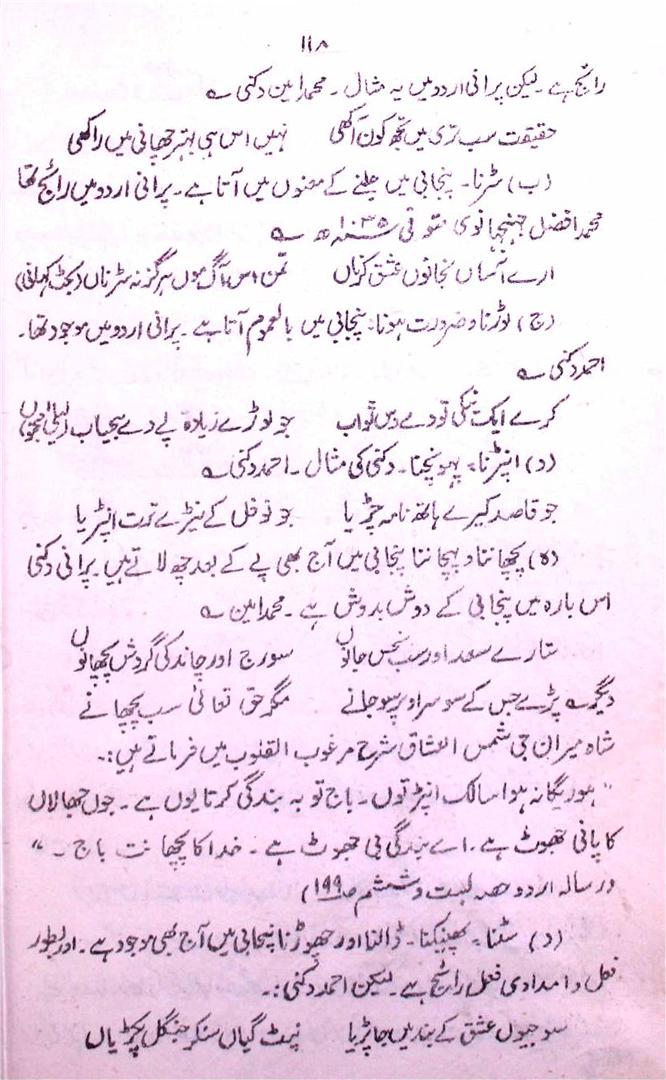 ۱۱۸
رائج ہے۔ لیکن پرانی اردو میں یہ مثال۔ محمد امین دکنی ؎
حقیقت سب تری میں تجھ کون آکھی نہیں اس ہی بہتر چھپانی میں راکھی
(ب) سڑنا۔ پنجابی میں جلنے کے معنوں میں آتا ہے۔ پرانی اردو میں رائج تھا
محمد افضل جھنجھانوی متوفی ۱۰۳۵ھ ؎
ارے آساں نجانوں عشق کرناں تمن اس آگ موں ہرگز نہ سڑناں (بکٹ کہانی)
(ج) لوڑنا و ضرورت ہونا: پنجابی میں بالعموم آتا ہے۔ پرانی اردو میں موجود تھا۔
احمد دکنی ؎
کرے ایک نیکی تو دے دس ثواب جو لوڑے زیادہ لے دے بیحیاب (لیلیٰ مجنوں)
(د) انپڑنا، پہونچنا۔ دکنی کی مثال۔ احمد دکنی ؎
جو قاصد کیرے ہاتھ نامہ چڑیا جو نوفل کے نیڑے ترت انپڑیا
(ہ) پچھاننا و پہچاننا پنجابی میں آج بھی پے کے بعد چھ لاتے ہیں پرانی دکنی
اس بارہ میں پنجابی کے دوش بدوش ہے۔ محمد امین ؎
ستارے سعد اور سب نحس جانوں سورج اور چاند کی گردش پچھانوں
دیگر ؎ پڑے جس کے سو سر اوپر سو جانے مگر حق تعالیٰ سب پچھانے
شاہ میران جی شمس العشاق شرح مرغوب القلوب میں فرماتے ہیں:۔
"ہور یگانہ ہوا سالک انپڑ توں۔ باج توبہ بندگی کرتا یوں ہے۔ جوں جھالاں
کا پانی جھوٹ ہے۔ اے بندگی بی جھوٹ ہے۔ خدا کا پچھانت باج۔"
(رسالہ اردو حصہ بست و ششم ص ۱۹۹)
(د) سٹنا۔ پھینکنا۔ ڈالنا اور چھوڑنا پنجابی میں آج بھی موجود ہے۔ اور بطور
فعل و امدادی فعل رائج ہے۔ لیکن احمد دکنی:۔
سو جیوں عشق کے بند میں جا پڑیا نپٹ گیاں سنکر جنگل پکڑیاں